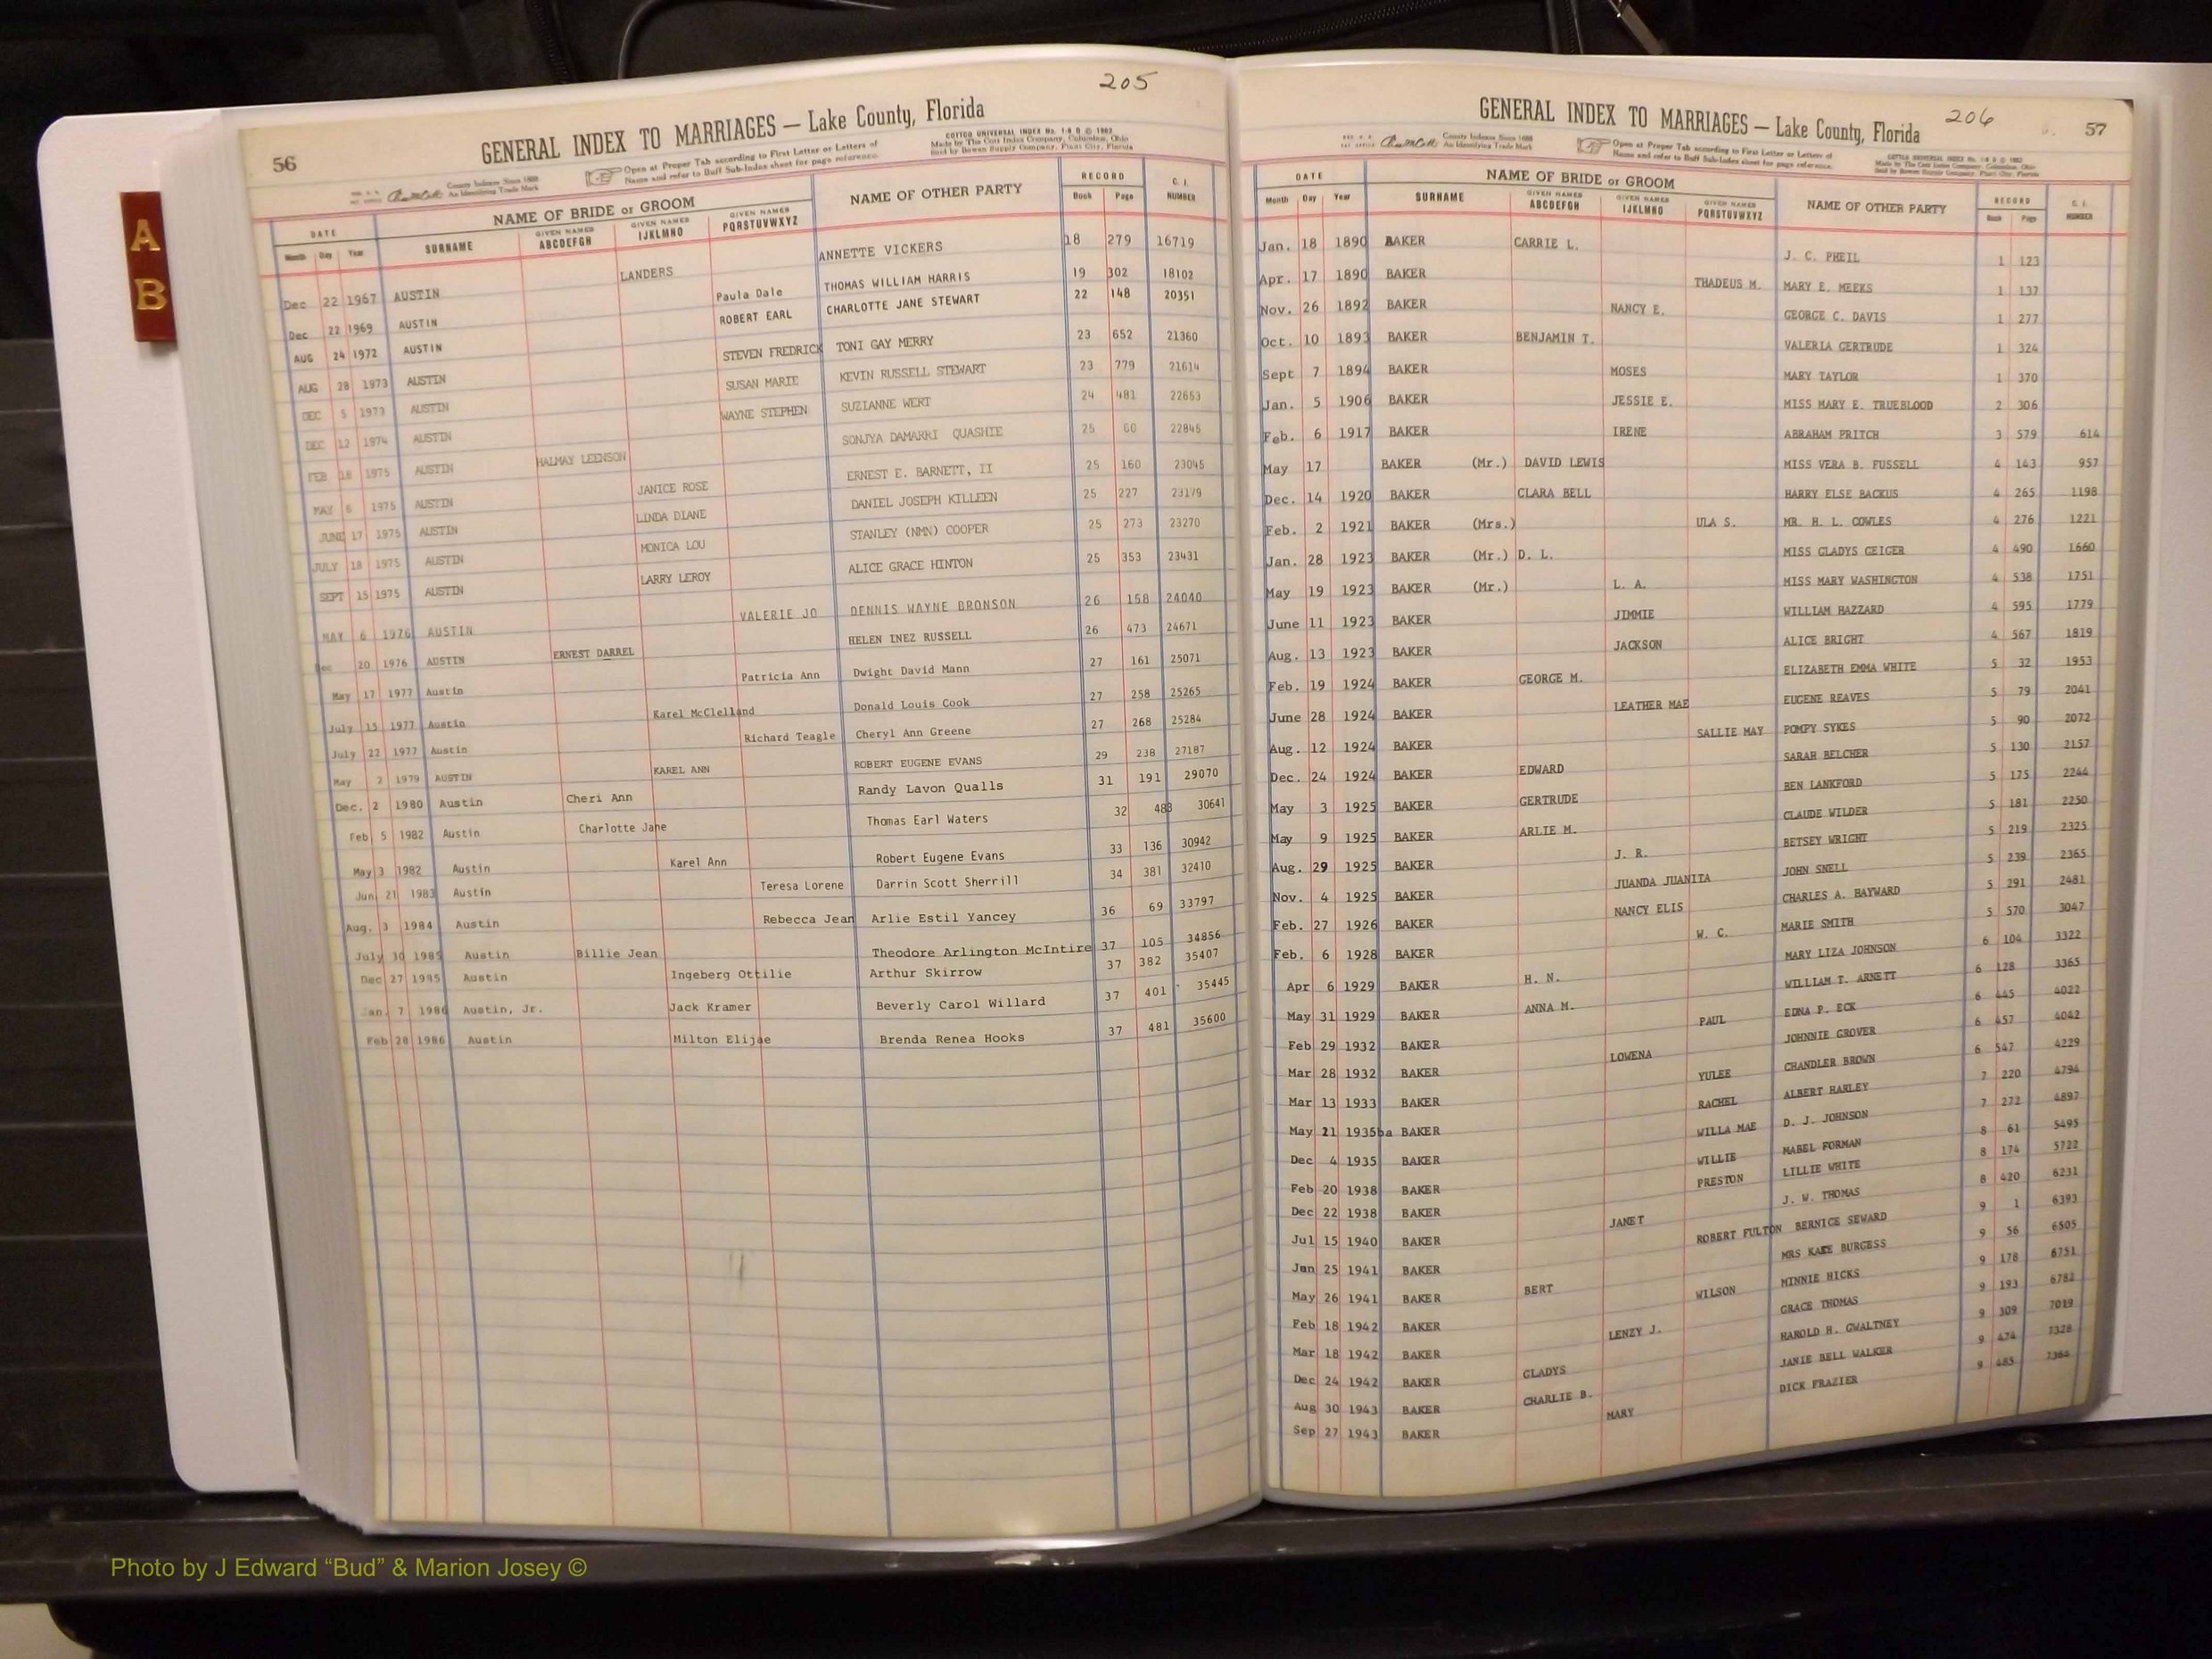 A
B
205
56
GENERAL INDEX TO MARRIAGES — Lake County, Florida
County Indexes Since 1888
An Identifying Trade Mark
Open at Proper Tab according to First Letter or Letters of
Name and refer to Buff Sub-Index sheet for page reference.
COTTCO UNIVERSAL INDEX No. 1-8 © 1962
Made by The Cott Index Company, Columbus, Ohio
Sold by Bowen Supply Company, Plant City, Florida
DATE NAME OF BRIDE or GROOM NAME OF OTHER PARTY RECORD C. I. NUMBER
Month Day Year SURNAME GIVEN NAMES ABCDEFGH GIVEN NAMES IJKLMNO GIVEN NAMES PQRSTUVWXYZ Book Page
Dec 22 1967 AUSTIN LANDERS ANNETTE VICKERS 18 279 16719
Dec 22 1969 AUSTIN Paula Dale THOMAS WILLIAM HARRIS 19 302 18102
AUG 24 1972 AUSTIN ROBERT EARL CHARLOTTE JANE STEWART 22 148 20351
AUG 28 1973 AUSTIN STEVEN FREDRICK TONI GAY MERRY 23 652 21360
DEC 5 1973 AUSTIN SUSAN MARIE KEVIN RUSSELL STEWART 23 779 21614
DEC 12 1974 AUSTIN WAYNE STEPHEN SUZIANNE WERT 24 481 22653
FEB 18 1975 AUSTIN HALMAY LEENSON SONJYA DAMARRI QUASHIE 25 60 22845
MAY 6 1975 AUSTIN JANICE ROSE ERNEST E. BARNETT, II 25 160 23045
JUNE 17 1975 AUSTIN LINDA DIANE DANIEL JOSEPH KILLEEN 25 227 23179
JULY 18 1975 AUSTIN MONICA LOU STANLEY (NMN) COOPER 25 273 23270
SEPT 15 1975 AUSTIN LARRY LEROY ALICE GRACE HINTON 25 353 23431
MAY 6 1976 AUSTIN VALERIE JO DENNIS WAYNE BRONSON 26 158 24040
Dec 20 1976 AUSTIN ERNEST DARREL HELEN INEZ RUSSELL 26 473 24671
May 17 1977 Austin Patricia Ann Dwight David Mann 27 161 25071
July 15 1977 Austin Karel McClelland Donald Louis Cook 27 258 25265
July 22 1977 Austin Richard Teagle Cheryl Ann Greene 27 268 25284
May 2 1979 AUSTIN KAREL ANN ROBERT EUGENE EVANS 29 238 27187
Dec. 2 1980 Austin Cheri Ann Randy Lavon Qualls 31 191 29070
Feb 5 1982 Austin Charlotte Jane Thomas Earl Waters 32 488 30641
May 3 1982 Austin Karel Ann Robert Eugene Evans 33 136 30942
Jun 21 1983 Austin Teresa Lorene Darrin Scott Sherrill 34 381 32410
Aug. 3 1984 Austin Rebecca Jean Arlie Estil Yancey 36 69 33797
July 30 1985 Austin Billie Jean Theodore Arlington McIntire 37 105 34856
Dec 27 1985 Austin Ingeberg Ottilie Arthur Skirrow 37 382 35407
Jan. 7 1986 Austin, Jr. Jack Kramer Beverly Carol Willard 37 401 35445
Feb 28 1986 Austin Milton Elijae Brenda Renea Hooks 37 481 35600
206
57
GENERAL INDEX TO MARRIAGES — Lake County, Florida
County Indexes Since 1888
An Identifying Trade Mark
Open at Proper Tab according to First Letter or Letters of
Name and refer to Buff Sub-Index sheet for page reference.
COTTCO UNIVERSAL INDEX No. 1-8 © 1962
Made by The Cott Index Company, Columbus, Ohio
Sold by Bowen Supply Company, Plant City, Florida
DATE NAME OF BRIDE or GROOM NAME OF OTHER PARTY RECORD C. I. NUMBER
Month Day Year SURNAME GIVEN NAMES ABCDEFGH GIVEN NAMES IJKLMNO GIVEN NAMES PQRSTUVWXYZ Book Page
Jan. 18 1890 BAKER CARRIE L. J. C. PHEIL 1 123
Apr. 17 1890 BAKER THADEUS M. MARY E. MEEKS 1 137
Nov. 26 1892 BAKER NANCY E. GEORGE C. DAVIS 1 277
Oct. 10 1893 BAKER BENJAMIN T. VALERIA GERTRUDE 1 324
Sept 7 1894 BAKER MOSES MARY TAYLOR 1 370
Jan. 5 1906 BAKER JESSIE E. MISS MARY E. TRUEBLOOD 2 306
Feb. 6 1917 BAKER IRENE ABRAHAM PRITCH 3 579 614
May 17 BAKER (Mr.) DAVID LEWIS MISS VERA B. FUSSELL 4 143 957
Dec. 14 1920 BAKER CLARA BELL HARRY ELSE BACKUS 4 265 1198
Feb. 2 1921 BAKER (Mrs.) ULA S. MR. H. L. COWLES 4 276 1221
Jan. 28 1923 BAKER (Mr.) D. L. MISS GLADYS GEIGER 4 490 1660
May 19 1923 BAKER (Mr.) L. A. MISS MARY WASHINGTON 4 538 1751
June 11 1923 BAKER JIMMIE WILLIAM HAZZARD 4 595 1779
Aug. 13 1923 BAKER JACKSON ALICE BRIGHT 4 567 1819
Feb. 19 1924 BAKER GEORGE M. ELIZABETH EMMA WHITE 5 32 1953
June 28 1924 BAKER LEATHER MAE EUGENE REAVES 5 79 2041
Aug. 12 1924 BAKER SALLIE MAY POMPY SYKES 5 90 2072
Dec. 24 1924 BAKER EDWARD SARAH BELCHER 5 130 2157
May 3 1925 BAKER GERTRUDE BEN LANKFORD 5 175 2244
May 9 1925 BAKER ARLIE M. CLAUDE WILDER 5 181 2250
Aug. 29 1925 BAKER J. R. BETSEY WRIGHT 5 219 2325
Nov. 4 1925 BAKER JUANDA JUANITA JOHN SNELL 5 239 2365
Feb. 27 1926 BAKER NANCY ELIS CHARLES A. HAYWARD 5 291 2481
Feb. 6 1928 BAKER W. C. MARIE SMITH 5 570 3047
Apr 6 1929 BAKER H. N. MARY LIZA JOHNSON 6 104 3322
May 31 1929 BAKER ANNA M. WILLIAM T. ARNETT 6 128 3365
Feb 29 1932 BAKER PAUL EDNA P. ECK 6 445 4022
Mar 28 1932 BAKER LOWENA JOHNNIE GROVER 6 457 4042
Mar 13 1933 BAKER YULEE CHANDLER BROWN 6 547 4229
May 21 1935ba BAKER RACHEL ALBERT HARLEY 7 220 4794
Dec 4 1935 BAKER WILLA MAE D. J. JOHNSON 7 272 4897
Feb 20 1938 BAKER WILLIE MABEL FORMAN 8 61 5495
Dec 22 1938 BAKER PRESTON LILLIE WHITE 8 174 5722
Jul 15 1940 BAKER JANET J. W. THOMAS 8 420 6231
Jan 25 1941 BAKER ROBERT FULTON BERNICE SEWARD 9 1 6393
May 26 1941 BAKER BERT MRS KATE BURGESS 9 56 6505
Feb 18 1942 BAKER WILSON MINNIE HICKS 9 178 6751
Mar 18 1942 BAKER LENZY J. GRACE THOMAS 9 193 6782
Dec 24 1942 BAKER GLADYS HAROLD H. GWALTNEY 9 309 7019
Aug 30 1943 BAKER CHARLIE B. JANIE BELL WALKER 9 474 7328
Sep 27 1943 BAKER MARY DICK FRAZIER 9 485 7364
Photo by J Edward “Bud” & Marion Josey ©